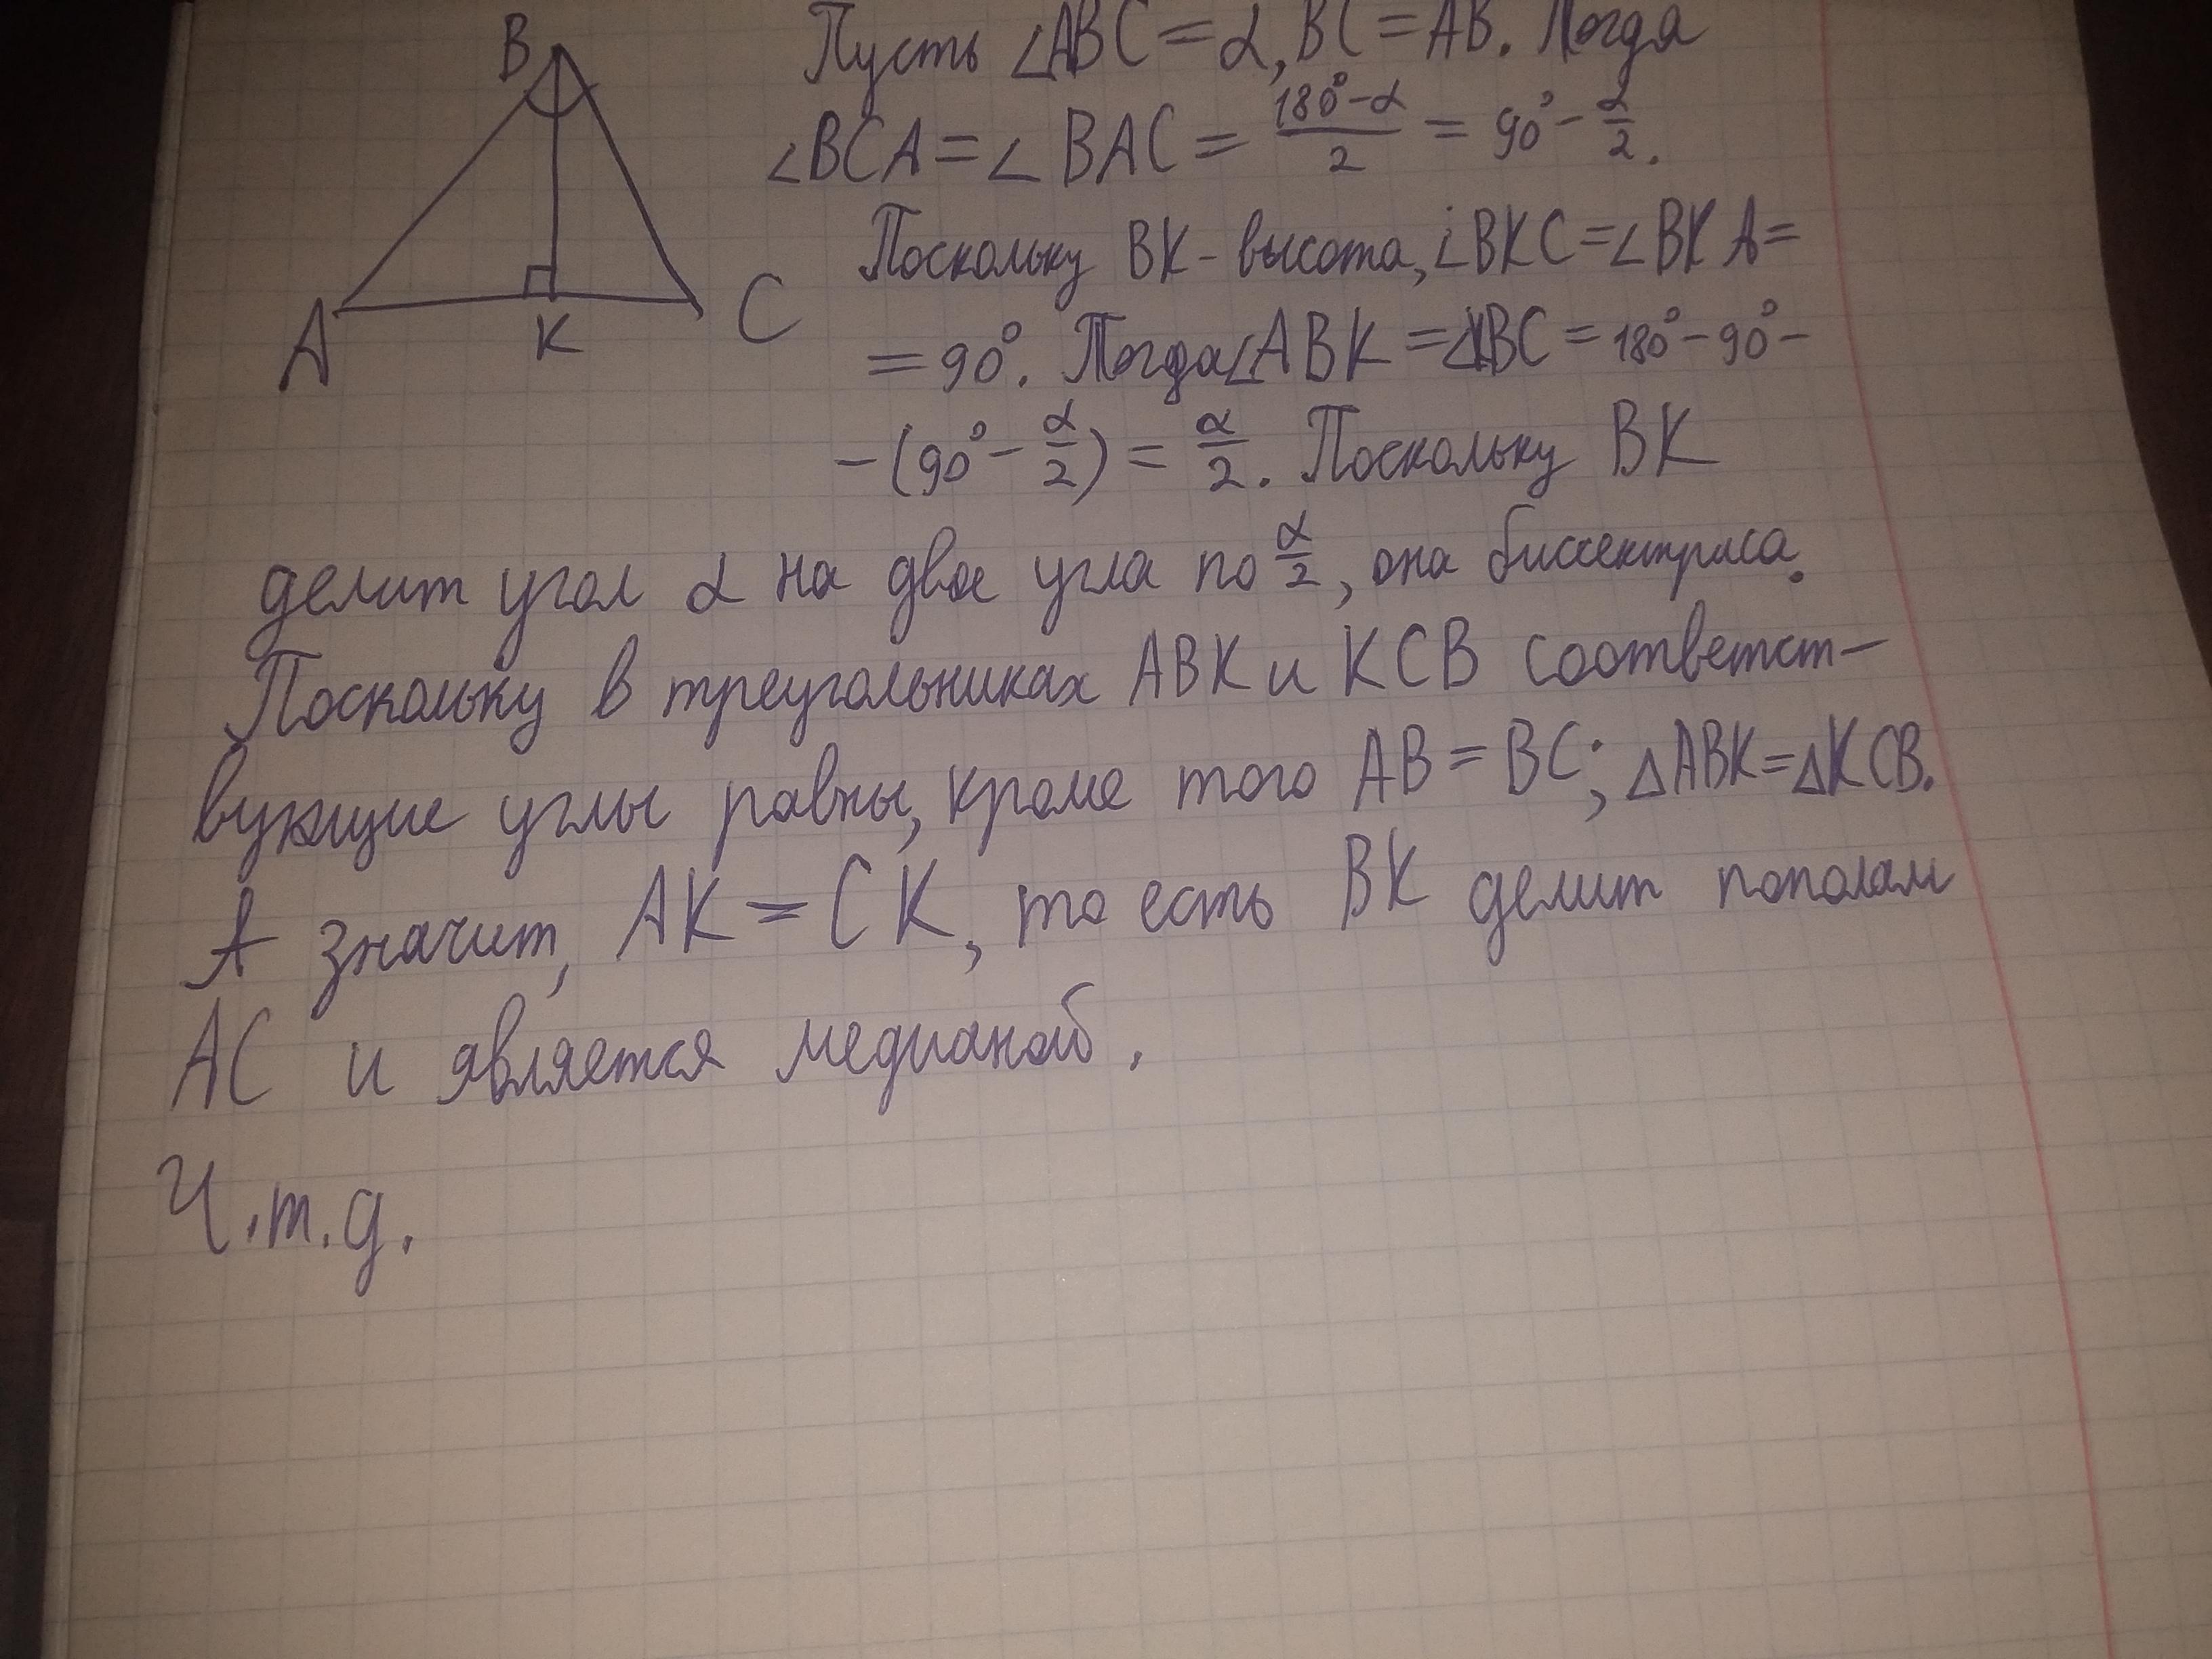 B
A
K
C
Пусть ∠ABC = α, BC = AB. Тогда
∠BCA = ∠BAC = (180° - α)/2 = 90° - α/2.
Поскольку BK - высота, ∠BKC = ∠BKA =
= 90°. Тогда ∠ABK = ∠KBC = 180° - 90° -
- (90° - α/2) = α/2. Поскольку BK
делит угол α на два угла по α/2, она биссектриса.
Поскольку в треугольниках ABK и KCB соответст-
вующие углы равны, кроме того AB = BC; △ABK = △KCB.
А значит, AK = CK, то есть BK делит пополам
AC и является медианой.
Ч.т.д.